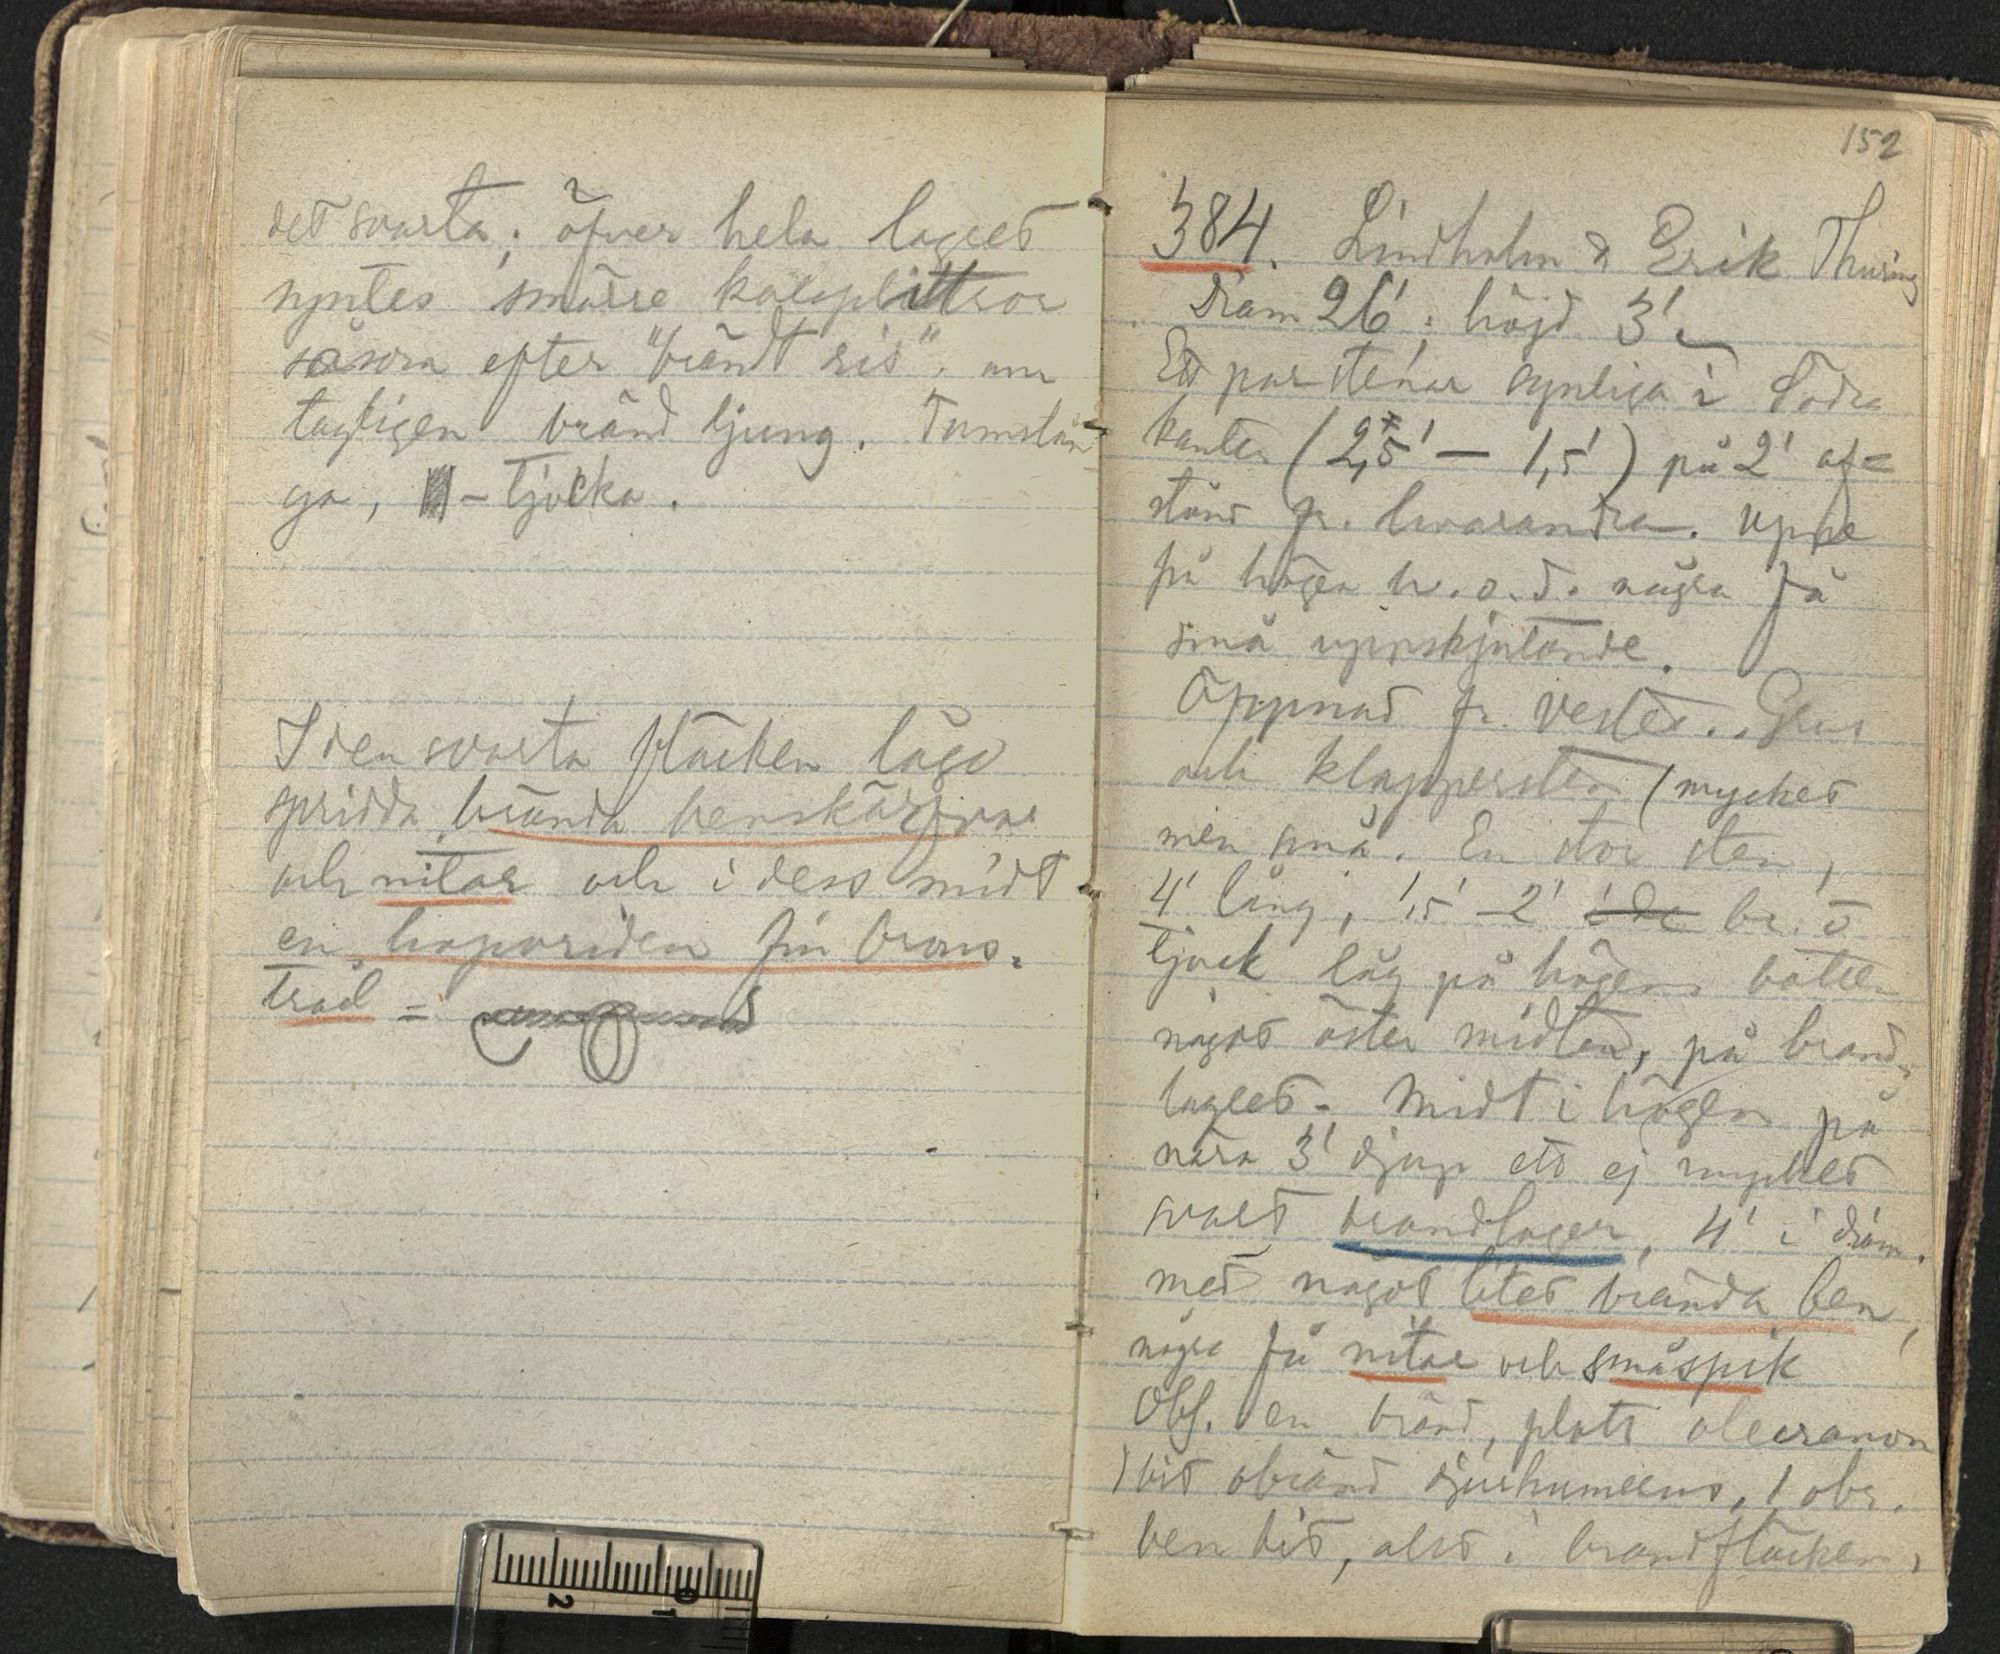 det svarta; öfver hela lagret
syntes smärre kolsplittror
såsom efter "brändt ris", an
tagligen bränd ljung. Tumslån
ga, -tjocka.
I den svarta fläcken lågo
spridda brända benskärfvor
och nitar och i dess midt
en hoprriden fin brons-
tråd =
152
384. Lindholm & Erik Thuring
Diam 26'; höjd 3'.
Ett par stenar synliga i södra
kanten (2,5' — 1,5') på 2' af=
stånd fr. hvarandra. Uppe
på högen h. o. d. några få
små uppskjutande.
Öppnad fr. vester. Grus
och klappersten (mycket
men små. En stor sten,
4' lång, 1,5' - 2' br. o
tjock låg på högens botten
något öster midten, på brand-
lagret. Midt i högen på
nära 3' djup ett ej mycket
svart brandlager, 4' i diam.
med något litet brända ben,
några få nitar och småspik
Obs. en bränd, platt olecranon
1 bit obränd djurhumerus, 1 obr.
ben bit, allt i brandfläcken,
2
0
1